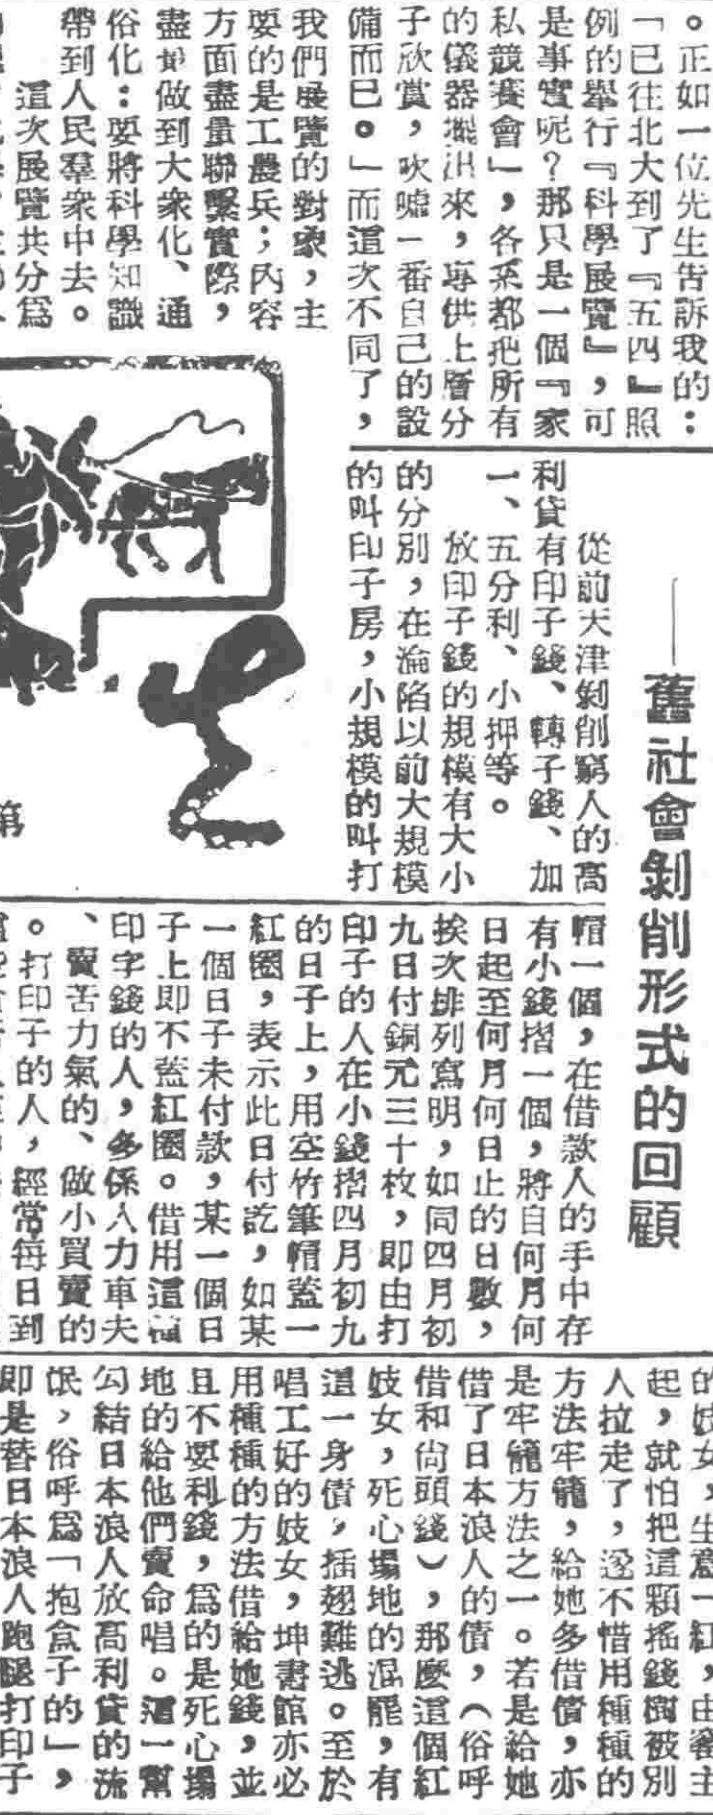 。正如一位先生告訴我的：
「已往北大到了『五四』照
例的舉行『科學展覽』，可
是事實呢？那只是一個『家
私競賽會』，各系都把所有
的儀器擺出來，專供上層分
子欣賞，吹噓一番自己的設
備而已。」而這次不同了，
我們展覽的對象，主
要的是工農兵；內容
方面盡量聯繫實際，
盡量做到大衆化、通
俗化：要將科學知識
帶到人民羣衆中去。
這次展覽共分爲
——舊社會剝削形式的回顧
從前天津剝削窮人的高
利貸有印子錢、轉子錢、加
一、五分利、小押等。
放印子錢的規模有大小
的分別，在淪陷以前大規模
的叫印子房，小規模的叫打
生
第
帽一個，在借款人的手中存
有小錢摺一個，將自何月何
日起至何月何日止的日數，
挨次排列寫明，如同四月初
九日付銅元三十枚，即由打
印子的人在小錢摺四月初九
的日子上，用空竹筆帽蓋一
紅圈，表示此日付訖，如某
一個日子未付款，某一個日
子上即不蓋紅圈。借用這種
印字錢的人，多係人力車夫
、賣苦力氣的、做小買賣的
。打印子的人，經常每日到
的妓女，生意一紅，由窰主
起，就怕把這顆搖錢樹被別
人拉走了，遂不惜用種種的
方法牢籠，給她多借債，亦
是牢籠方法之一。若是給她
借了日本浪人的債，（俗呼
借和尙頭錢），那麼這個紅
妓女，死心塌地的混罷，有
這一身債，插翅難逃。至於
唱工好的妓女，坤書館亦必
用種種的方法借給她錢，並
且不要利錢，爲的是死心塌
地的給他們賣命唱。這一幫
勾結日本浪人放高利貸的流
氓，俗呼爲「抱盒子的」，
即是替日本浪人跑腿打印子